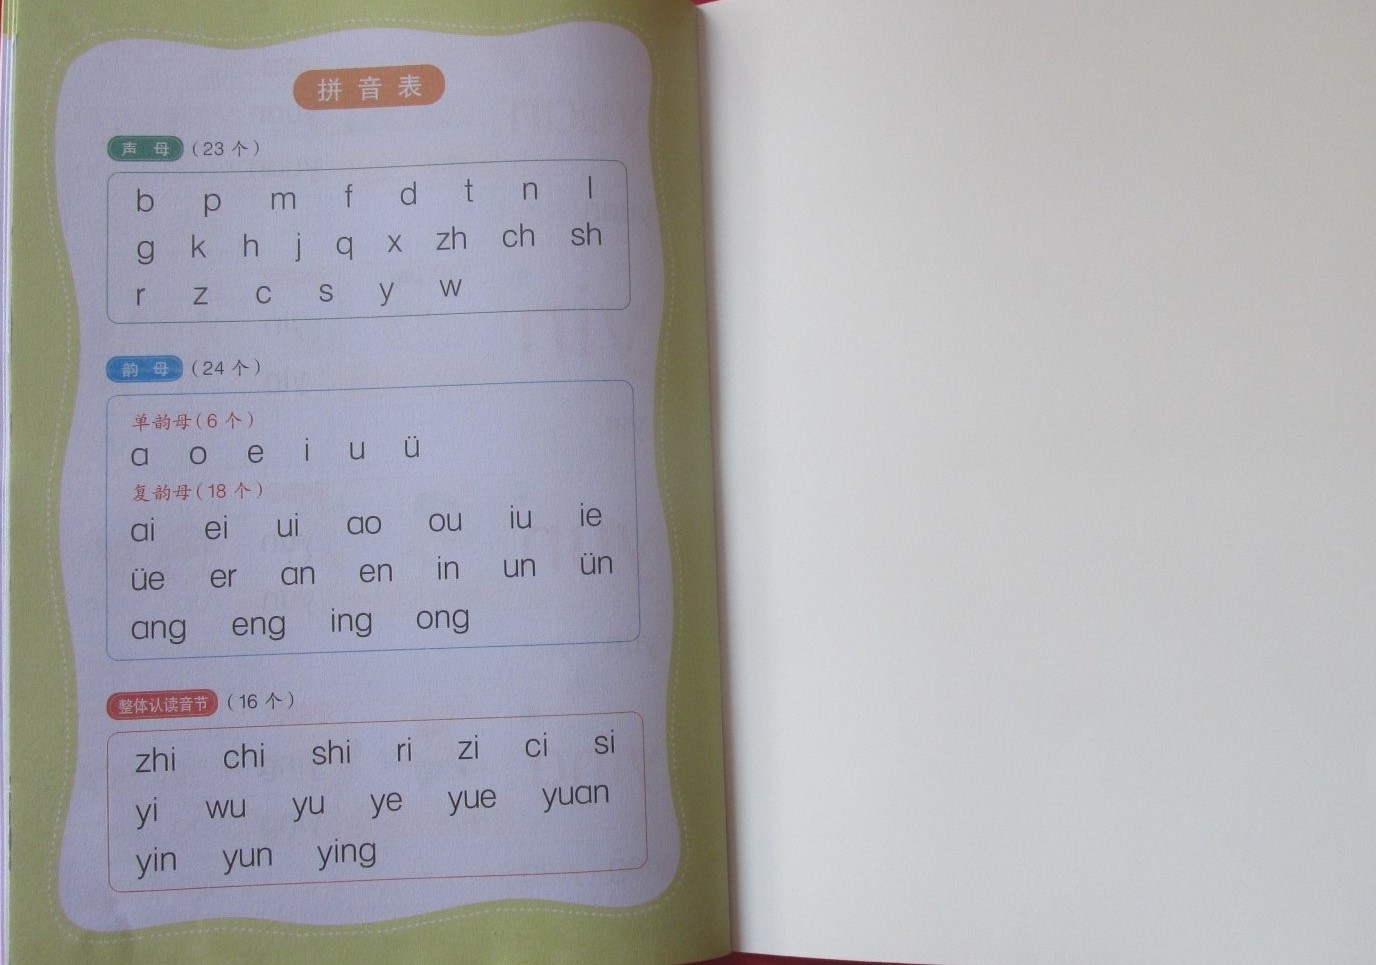 拼音表
声母（23个）
b p m f d t n l
g k h j q x zh ch sh
r z c s y w
韵母（24个）
单韵母（6个）
a o e i u ü
复韵母（18个）
ai ei ui ao ou iu ie
üe er an en in un ün
ang eng ing ong
整体认读音节（16个）
zhi chi shi ri zi ci si
yi wu yu ye yue yuan
yin yun ying